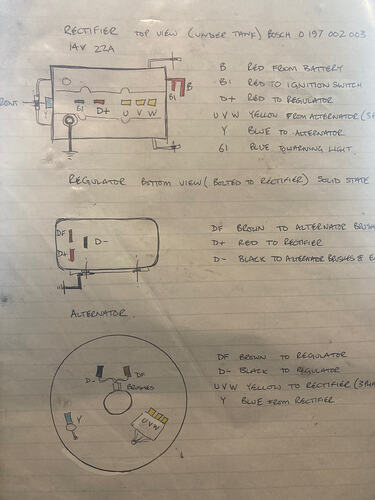 RECTIFIER TOP VIEW (UNDER TANK) BOSCH 0 197 002 003
14V 22A
B RED FROM BATTERY
B1 RED TO IGNITION SWITCH
D+ RED TO REGULATOR
U V W YELLOW FROM ALTERNATOR
Y BLUE TO ALTERNATOR
61 BLUE TO WARNING LIGHT
Y 61 D+ U V W B1 B
REGULATOR BOTTOM VIEW (BOLTED TO RECTIFIER) SOLID STATE
DF
D-
D+
DF BROWN TO ALTERNATOR
D+ RED TO RECTIFIER
D- BLACK TO ALTERNATOR BRUSHES &
ALTERNATOR.
D- DF
BRUSHES
Y
UVW
DF BROWN TO REGULATOR
D- BLACK TO REGULATOR
UVW YELLOW TO RECTIFIER
Y BLUE FROM RECTIFIER